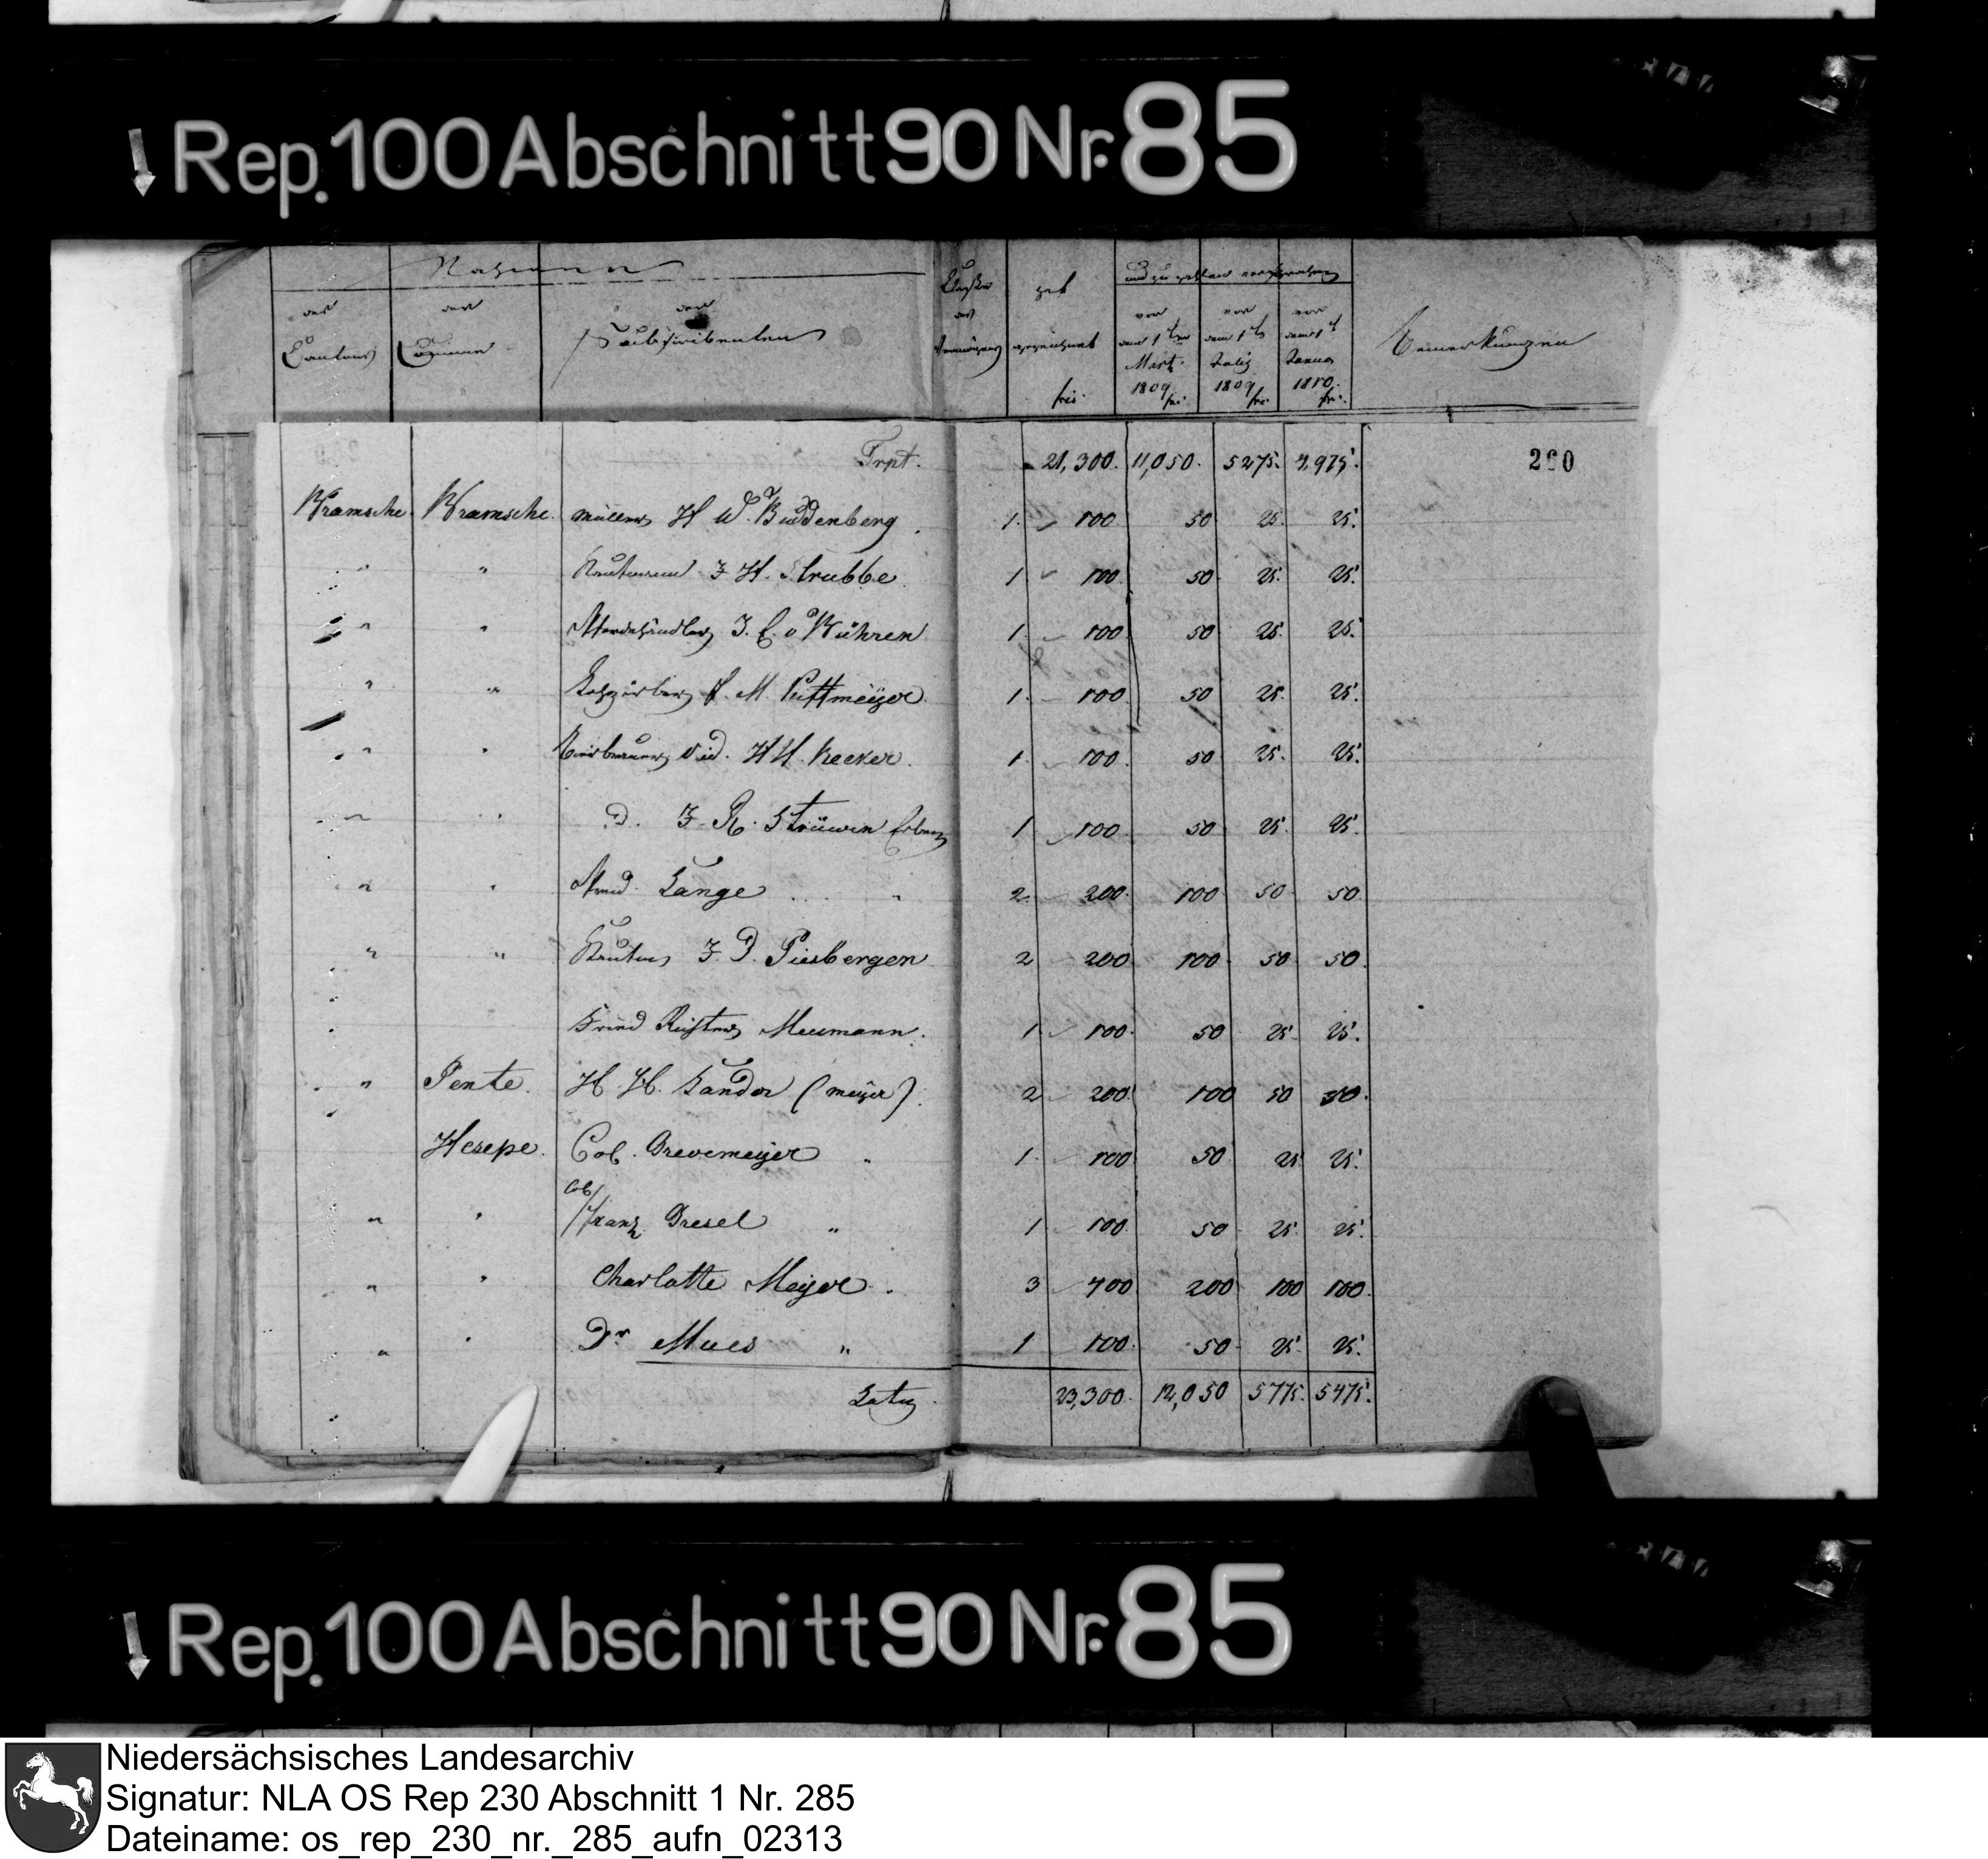 Rep. 100 Abschnitt 90 Nr. 85
Nahmen
der Cantons
der Comune
der Subscribenten
Classe der Vermögens
hat gezeichnet frs.
und zu zahlen versprochen
vor dem 1ten Märtz 1809 frs.
vor dem 1ten July 1809 frs.
vor dem 1t Januar 1810. frs.
Bemerkungen
Trpt. 21,300. 11,050. 5275. 4,975. 280
Bramsche. Bramsche. Müller H W. Buddenberg. 1. 100 50 25. 25.
" " Kaufmann J H. Strubbe. 1 100. 50 25. 25.
" " Pferdehändler J. C. v Bühren 1. 100 50 25. 25.
" " Lohgärber F. M. Puttmeÿer. 1. 100. 50 25. 25.
" " Bierbrauer Vid. H H. Recker. 1. 100. 50 25. 25.
" " D. J. R. Strüwen Erben 1 100. 50 25. 25.
" " Lange 2. 200. 100. 50 50.
" " Kaufm. J. D. Piesbergen 2 200. 100. 50 50.
Meumann. 1. 100. 50 25. 25.
" Pente. H. H. Sandor (meÿer). 2 200. 100 50 50.
Hesepe. Col. Grevemeÿer " 1. 100 50 25 25.
" " Col. Franz Dresel " 1. 100. 50 25. 25.
" " Charlotte Meÿer. 3 400 200 100 100.
" " Dr Mues " 1 100. 50. 25. 25.
Latus. 23,300. 12,050 5775. 5475.
Rep. 100 Abschnitt 90 Nr. 85
Niedersächsisches Landesarchiv
Signatur: NLA OS Rep 230 Abschnitt 1 Nr. 285
Dateiname: os_rep_230_nr._285_aufn_02313